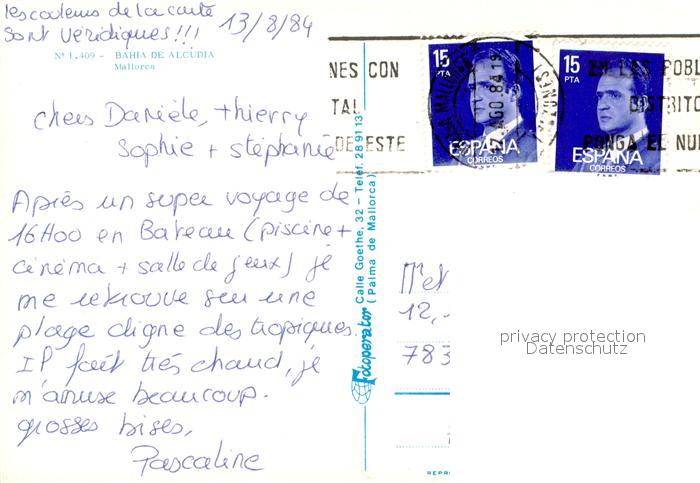 les couleurs de la carte
sont véridiques!!! 13/8/84
Nº 1.409 - BAHIA DE ALCUDIA
Mallorca
chers Danièle, thierry
Sophie + stéphanie
Après un super voyage de
16H00 en Bateau (piscine +
cinéma + salle de jeux) je
me retrouve sur une
plage digne des tropiques.
Il fait très chaud, je
m'amuse beaucoup.
grosses bises,
Pascaline
Fotoperator Calle Goethe, 32 - Telef. 28 91 13
(Palma de Mallorca)
NES CON
TAL
DE ESTE
15
PTA
ESPAÑA
CORREOS
AGO 84 19
15
PTA
ESPAÑA
CORREOS
EN LAS POBL
DISTRITO
PONGA EL NU
12,
783
privacy protection
Datenschutz
REPR